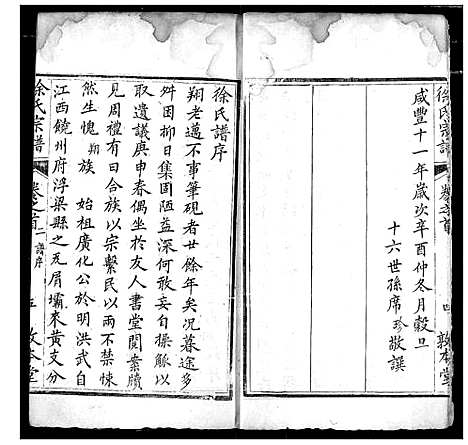 徐氏宗譜
卷之首
四
敦本堂
咸豐十一年歲次辛酉仲冬月穀旦
十六世孫席珍敬譔
徐氏譜序
翔老邁不事筆硯者廿餘年矣况暮途多
舛困抑日集固陋益深何敢妄自操觚以
取遺議庚申春偶坐於友人書堂閱案牘
見周禮有曰合族以宗繫民以兩不禁悚
然生愧翔族始祖廣化公於明洪武自
江西饒州府浮梁縣之瓦屑壩來黄支分
徐氏宗譜
卷之首
譜序
五
敦本堂